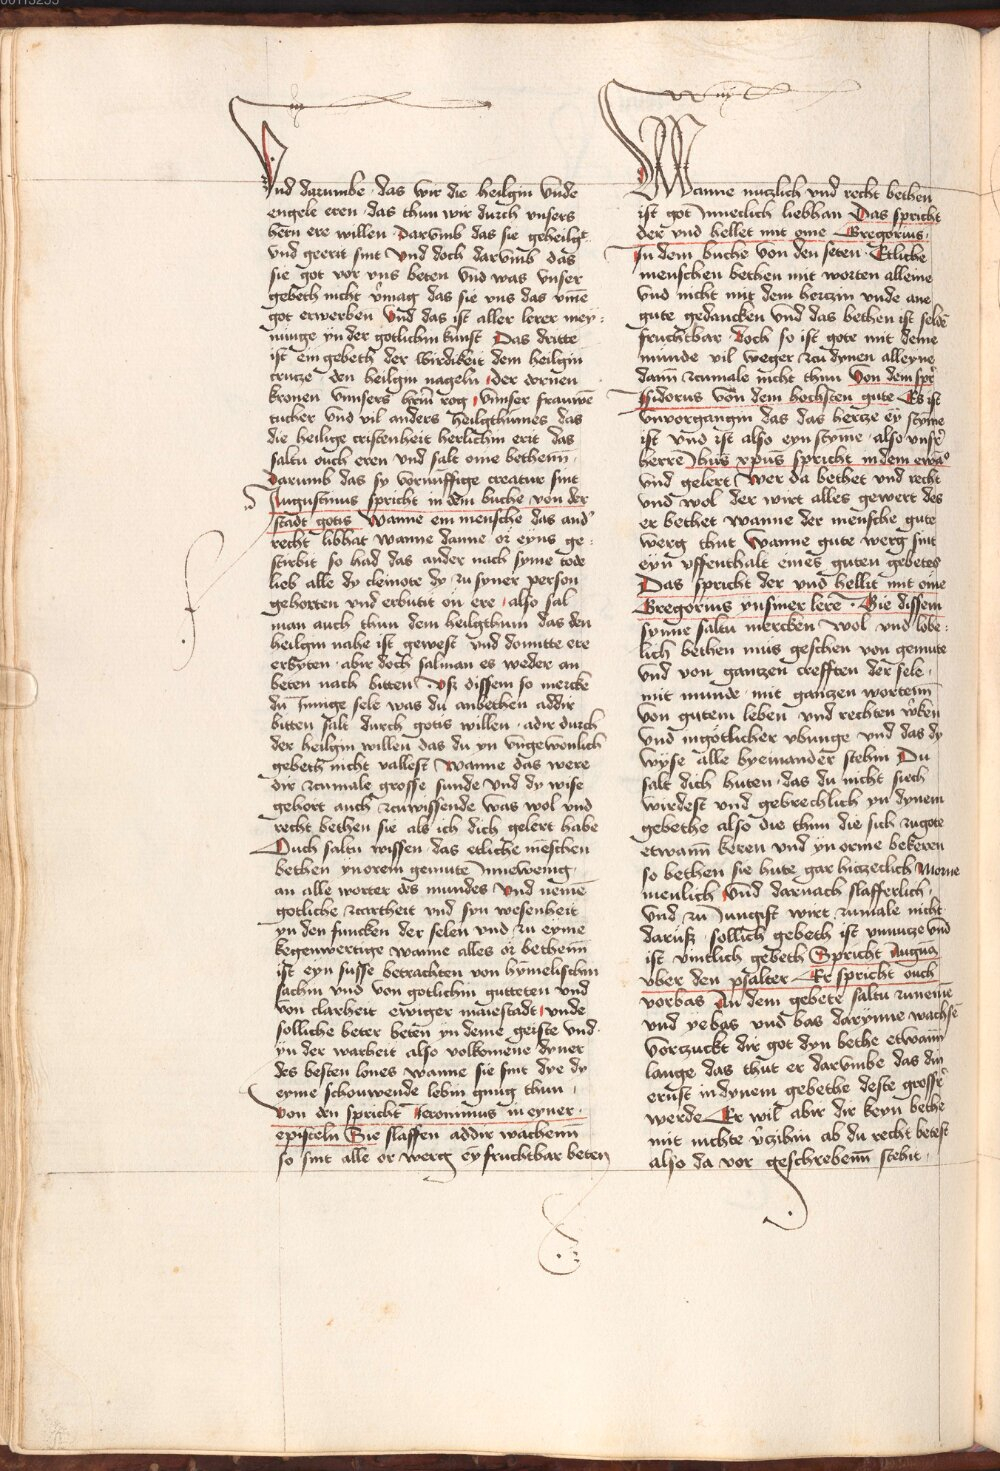 Vnd darumbe · das wir die heilgin vnde
engele eren · das thun wir durch vnsers
hern ere willen · Darvmb das sie geheilgt
vnd geerit sint Vnd doch darvmb das
sie got vor vns beten Vnd was vnser
gebeth nicht v̓mag das sie vns das vm̄e
got erwerben Vnd das ist aller lerer mey:
nunge yn der gotlichin kunst Das dritte
ist ein gebeth der wirdikeit dem heilgin
crucze · den heilgin nageln · der dornen
kronen vnnsers hern̄ rog vnnser frauwe
tucher Vnd vil anders heilgthumes das
die heilige cristenheit herlichin erit das
saltu ouch eren vnd salt ome bethenn̄ ·
darumb das sy vornufftige creatur sint
Augustinus spricht in dem buche von der
stadt gotis Wanne ein mensche das and̓
recht libhat wanne danne or eyns ge:
stirbit so had das ander nach syme tode
lieb alle dy cleinote dy zu syner person
gehorten vnd erbutit on ere · also sal
man auch thun dem heilgthum das den
heilgin nahe ist gewest vnd domitte ere
erbyten · abir doch salman es weder an
beten nach bitten · Vsz dissem so mercke
du Innige sele was du anbethen addir
bitten salt durch gotis willen · adir durch
der heilgin willen das du yn vngewonlich
gebeth nicht vallest Wanne das were
dir zcumale grosse sunde Vnd dy wise
gehort auch zcuwissende was wol vnd
recht bethen sie als ich dich gelert habe
Ouch saltu wissen das etliche menschen
bethen yn orem gemute Innewenig ·
an alle worter des mundes Vnd nemē
gotliche zcartheit vnd syn wesenheit
yn den funcken der selen vnd zu eyme
kegenwertige wanne alles or bethenn̄
ist eyn susse betrachten von hymelischin
sachin vnd von gotlichin gutteten vnd
von clarheit ewiger mauestadt · vnde
solliche beter beten yn deme geiste vnd
yn der warheit also volkomene dyner
des besten lones wanne sie sint dye dy
eyme schouwende lebin gnug thun ·
von den spricht Ieronimus in eyner ·
episteln Sie slaffen addir wachenn̄
so sint alle or werg ey fruchtbar beten
Wanne nuczlich vnd recht bethen
ist got Inneclich liebhan Das spricht
der vnd hellet mit ome Gregorius ·
In dem buche von den seten · Etliche
menschen bethen mit worten alleine
Vnd nicht mit dem herczin vnde ane
gute gedancken Vnd das bethen ist seldē
fruchtbar doch so ist gote mit deme
munde vil weger zcu dynen alleyne
dann̄ zcumale nicht thun Von dem spr̓
Isidorus von dem hochsten gute Es ist
vnvorgangin das das hercze ey styme
ist Vnd ist also eyn styme · also vnsr̓
herrē Ihūs xp̄us spricht in dem ewā
vnd gelert Wer da bethet vnd recht
vnd wol der wirt alles gewert des
er bethet wanne der mensche gute
werg thut Wanne gute werg sint
eyn vffenthalt eines guten gebetes
Das spricht der vnd hellit mit ome
Gregorius ynsiner lere · Bie dissem
synne saltu mercken Wol vnd lobe:
lich bethen mus geschen von gemute
Vnd von gantzen crefften der sele ·
mit munde · mit gantzen wortenn̄
von gutem leben vnd rechten w̓ken
Vnd ingotlicher vbunge vnd das dy
wyse alle byeinander stehin Du
salt dich huten · das du nicht siech
wirdest vnd gebrechlich yn dynem
gebethe also die thun die sich zugote
etwann̄ keren vnd yn orme bekeren
so bethen sie hute gar hiczeclich Morne
menlich Vnd darnach slafferlich ·
Vnd zu Iungist wirt zumale nicht
darusz · sollich gebeth ist vnnucze vnd
ist vintlich gebeth Spricht Augusā
vber den psalter Er spricht ouch
vorbas An dem gebete saltu zunemē
vnd yebas vnd bas darynne wachsē
Vorczuckt dir got dyn bethe etwann̄
lange das thut er darvmbe das din
ernst in dynem gebethe deste grossr̓
werde Er wil abir dir keyn bethe
mit nichte v̓czihin ab du recht betest
also da vor geschrebenn̄ stehit ·